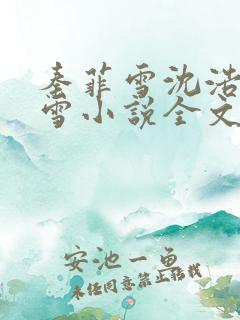 秦菲雪沈浩
雪小说全文
安池一鱼
未经同意禁止转载